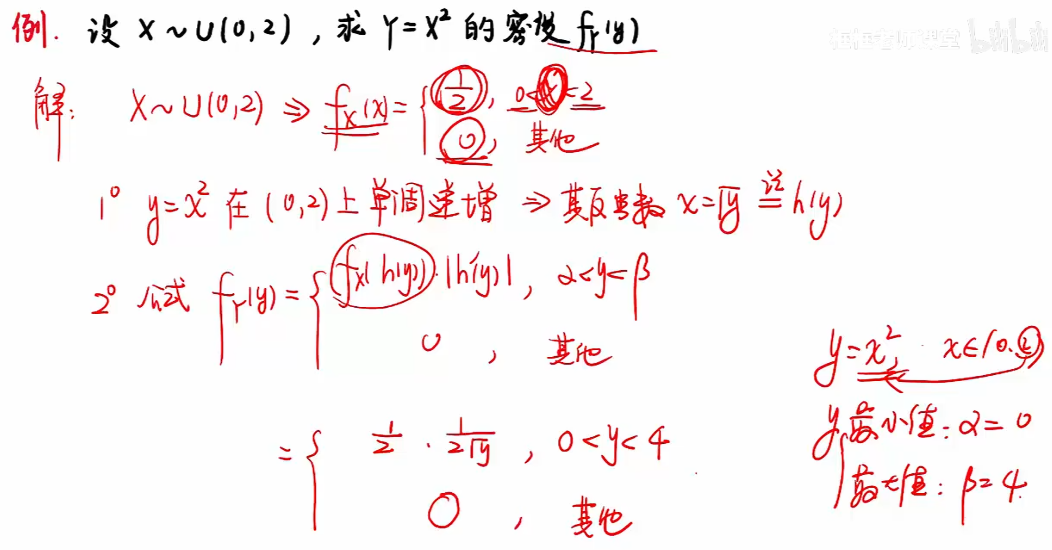 例. 设 X~U(0,2), 求 Y=X² 的密度 f_Y(y)
解: X~U(0,2) ⇒ f_X(x)= { 1/2, 0<x<2
0, 其他
1° y=x² 在 (0,2) 上单调递增 ⇒ 其反函数 x=√y 记= h(y)
2° 公式 f_Y(y)= { f_X(h(y))·|h'(y)|, α<y<β
0, 其他
= { 1/2 · 1/(2√y), 0<y<4
0, 其他
y=x², x∈(0,2)
y 最小值: α=0
最大值: β=4.
bilibili